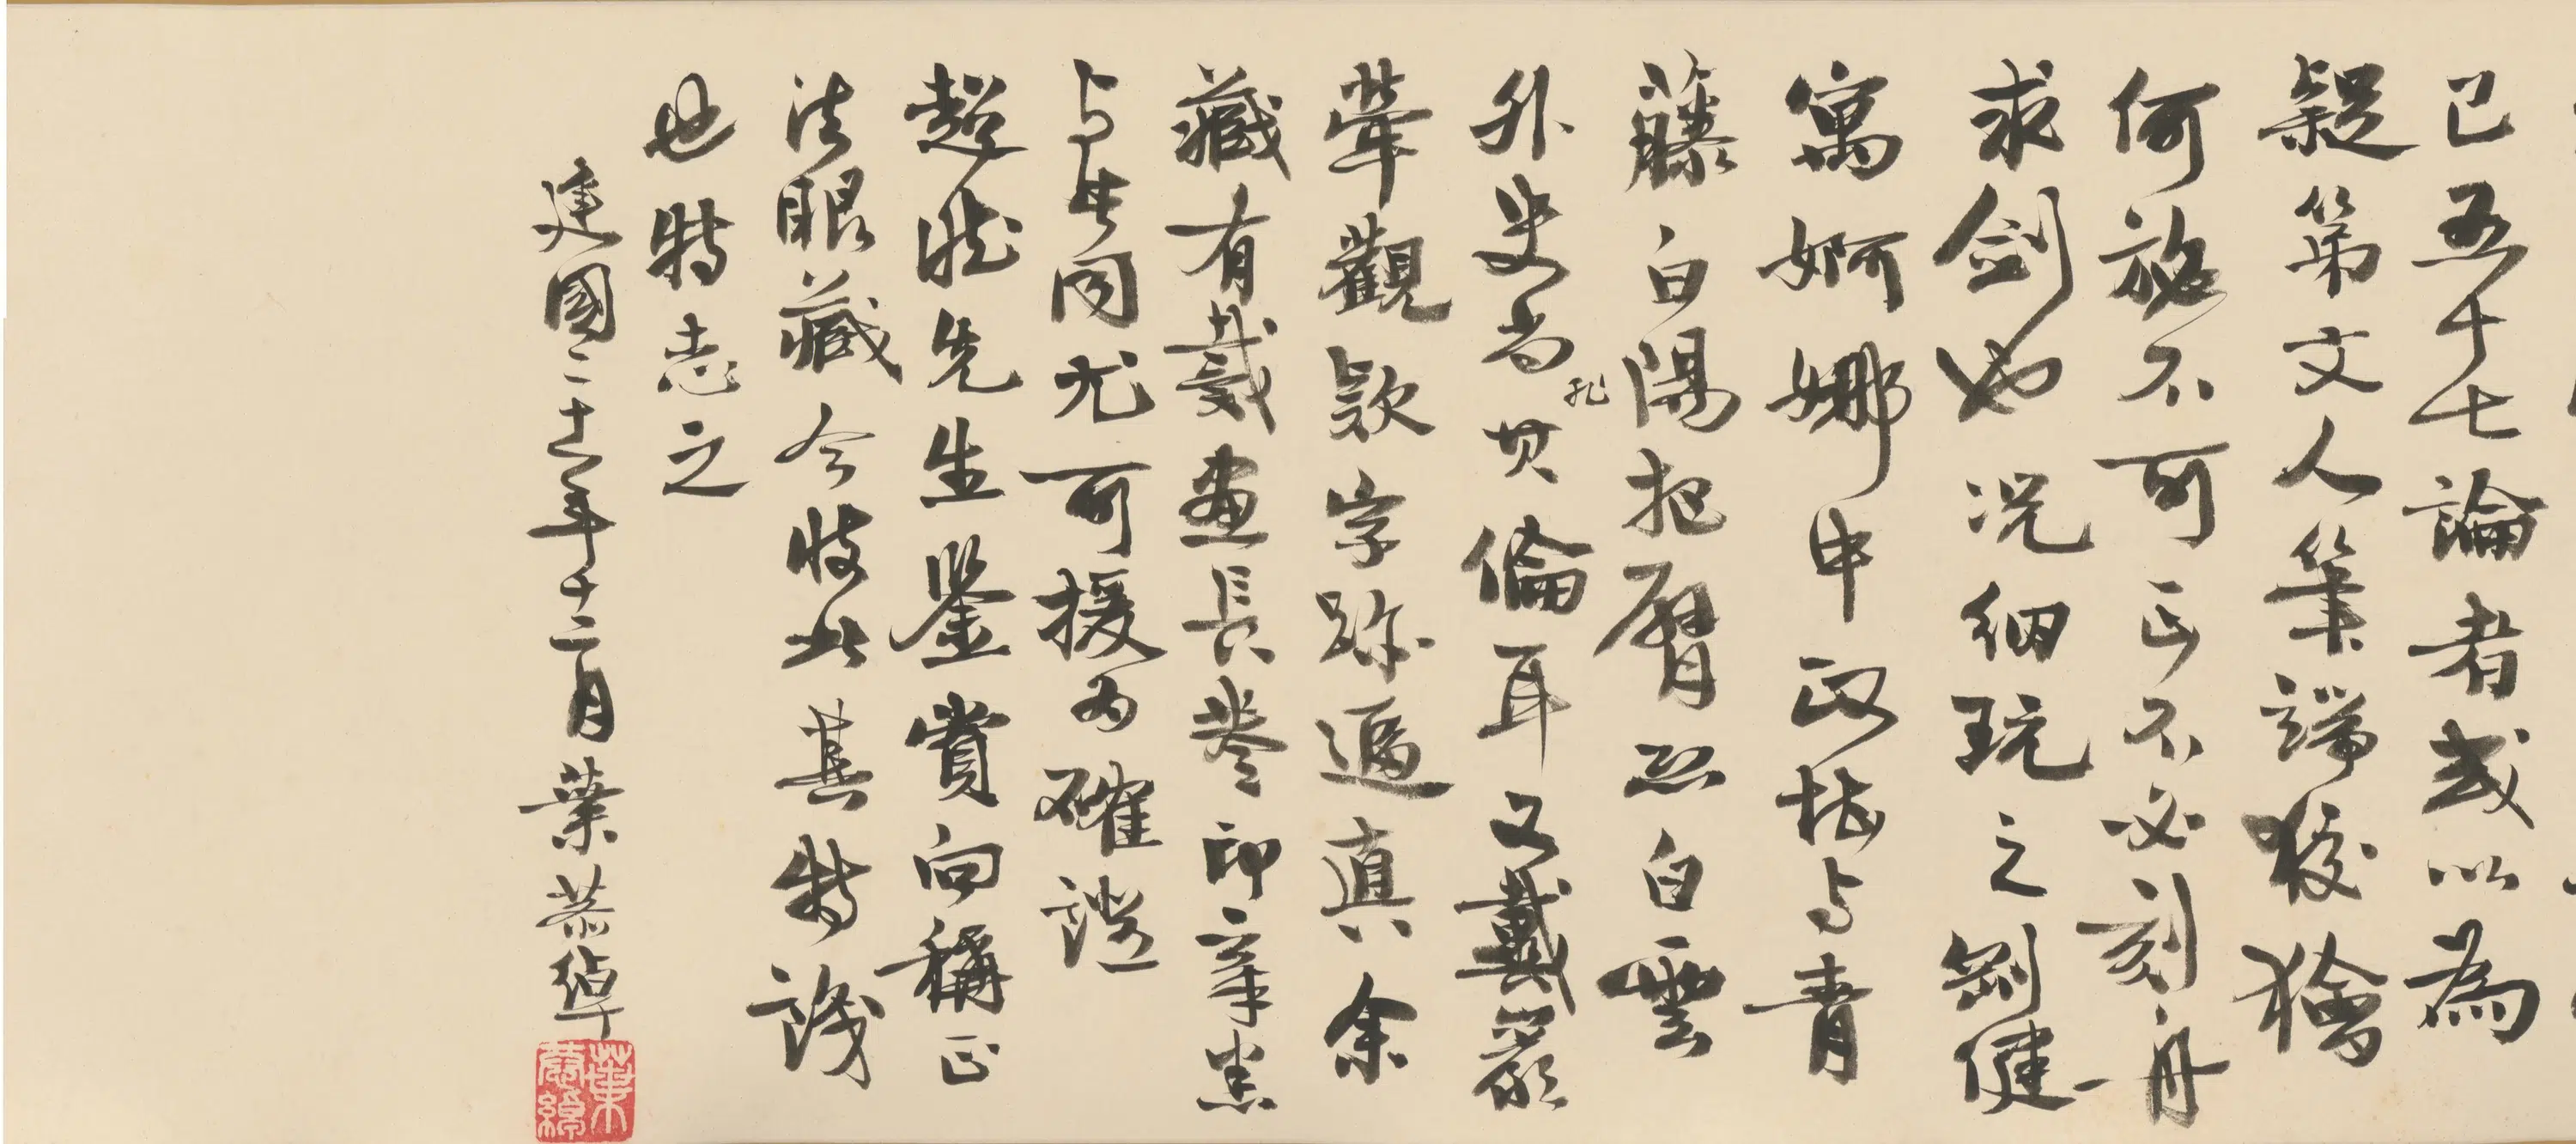 已五十七論者或以為
疑第文人筆端狡獪
何施不可正不必刻舟
求劍也況細玩之剛健
寓婀娜申政枯与青
藤白陽把臂恐白雲
外史尚非其倫耳又戴嚴
犖觀款字跡逼真余
藏有戴畫長卷印章悉
与此同尤可援為確證
超然先生鑒賞向稱正
法眼藏今收此其特識
也特志之
建國二十一年十二月葉恭綽
葉恭綽